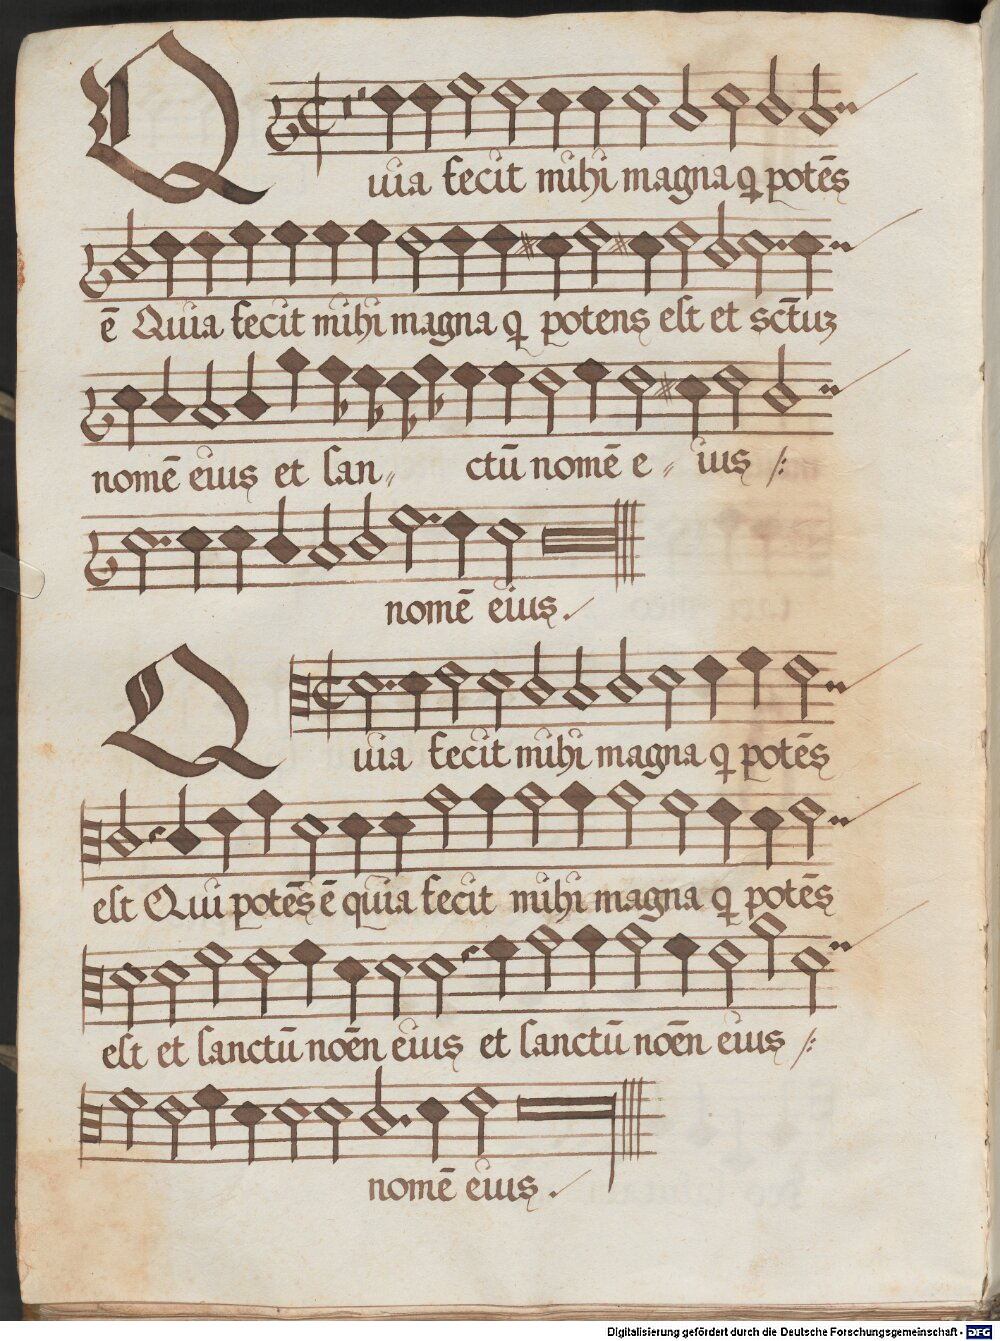 Quia fecit mihi magna q potēs
ē Quia fecit mihi magna q potens est et sctuz
nomē eius et san- ctū nomē e- ius /:
nomē eius.
Quia fecit mihi magna q potēs
est Qui potēs ē quia fecit mihi magna q potēs
est et sanctū noēn eius et sanctū noēn eius /:
nomē eius.
Digitalisierung gefördert durch die Deutsche Forschungsgemeinschaft - DFG